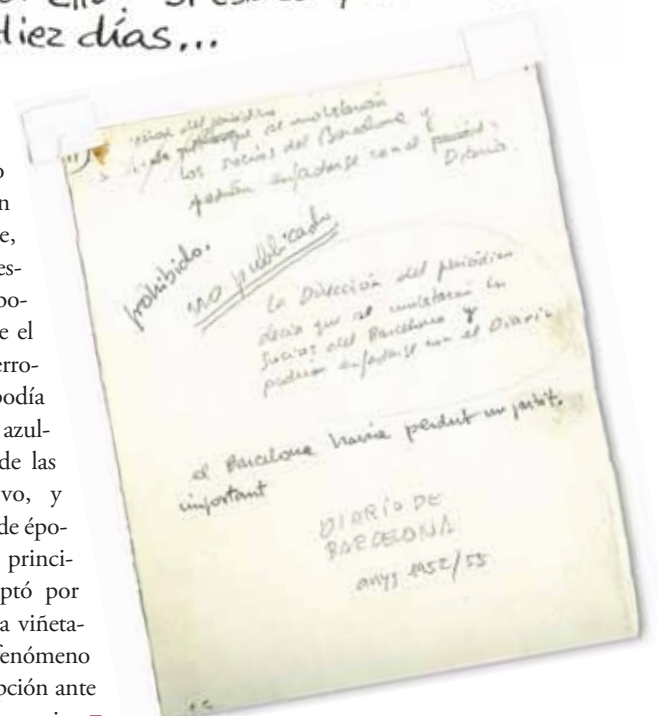 diez días...
o
n
e,
es-
bo-
e el
erro-
podía
azul-
de las
vo, y
de épo-
princi-
ptó por
a viñeta-
fenómeno
pción ante
del periódico
que se molestarán
los socios del Barcelona y
podrían enfadarse con el
Diario.
prohibido.
no publicado
La Dirección del periódico
decía que se molestarán los
Socios del Barcelona y
podrían enfadarse con el Diario
el Barcelona havia perdut un partit.
important
DIARIO DE
BARCELONA
anys 1952/55